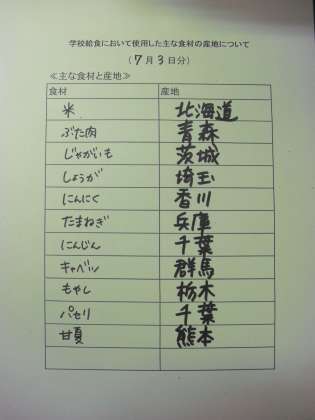 学校給食において使用した主な食材の産地について
(7月3日分)
≪主な食材と産地≫
食材 産地
米 北海道
ぶた肉 青森
じゃがいも 茨城
しょうが 埼玉
にんにく 香川
たまねぎ 兵庫
にんじん 千葉
キャベツ 群馬
もやし 栃木
パセリ 千葉
甘夏 熊本